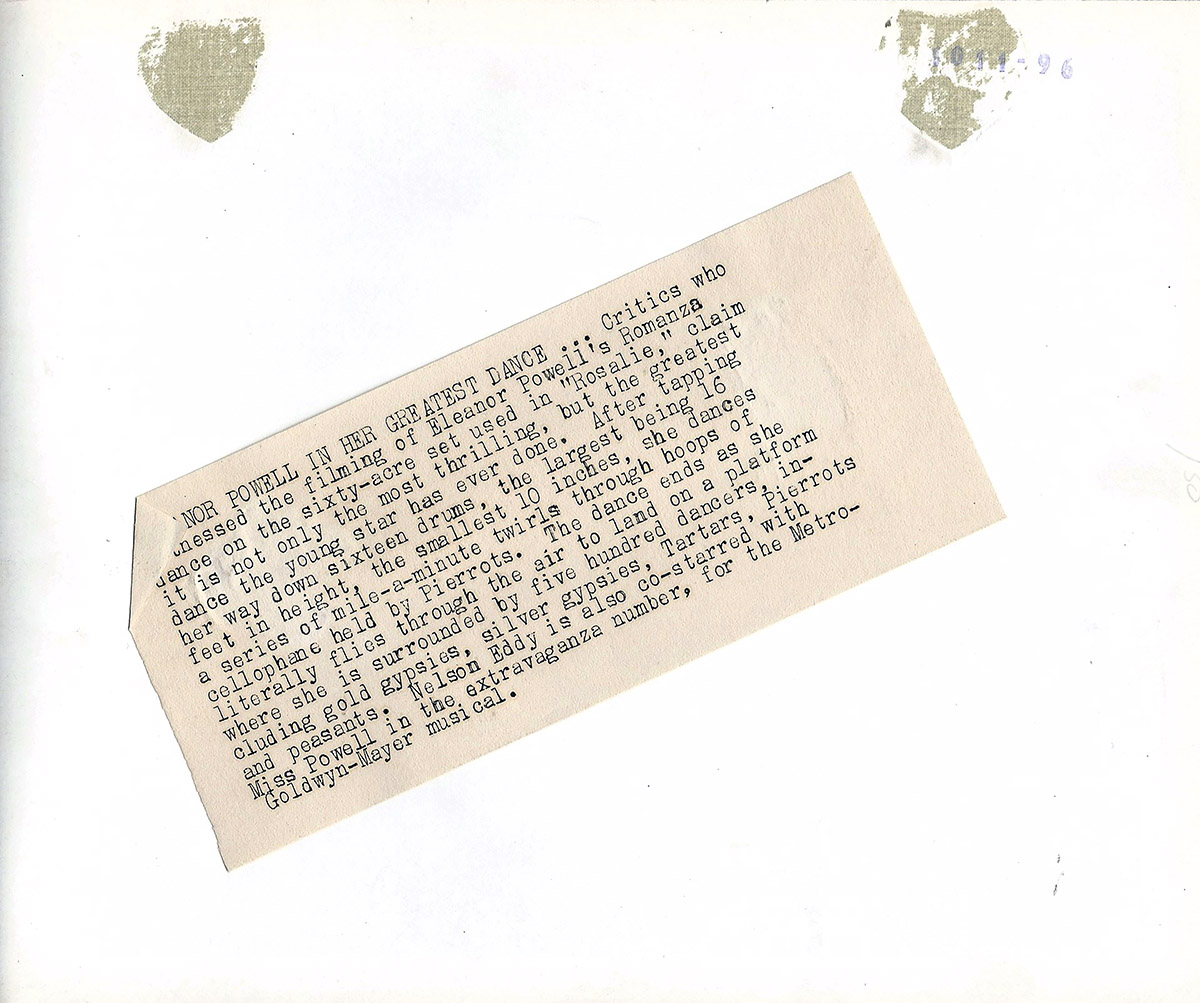 1011-96
NOR POWELL IN HER GREATEST DANCE ... Critics who
tnessed the filming of Eleanor Powell's Romanza
dance on the sixty-acre set used in "Rosalie," claim
it is not only the most thrilling, but the greatest
dance the young star has ever done. After tapping
her way down sixteen drums, the largest being 16
feet in height, the smallest 10 inches, she dances
a series of mile-a-minute twirls through hoops of
cellophane held by Pierrots. The dance ends as she
literally flies through the air to land on a platform
where she is surrounded by five hundred dancers, in-
cluding gold gypsies, silver gypsies, Tartars, Pierrots
and peasants. Nelson Eddy is also co-starred with
Miss Powell in the extravaganza number, for the Metro-
Goldwyn-Mayer musical.